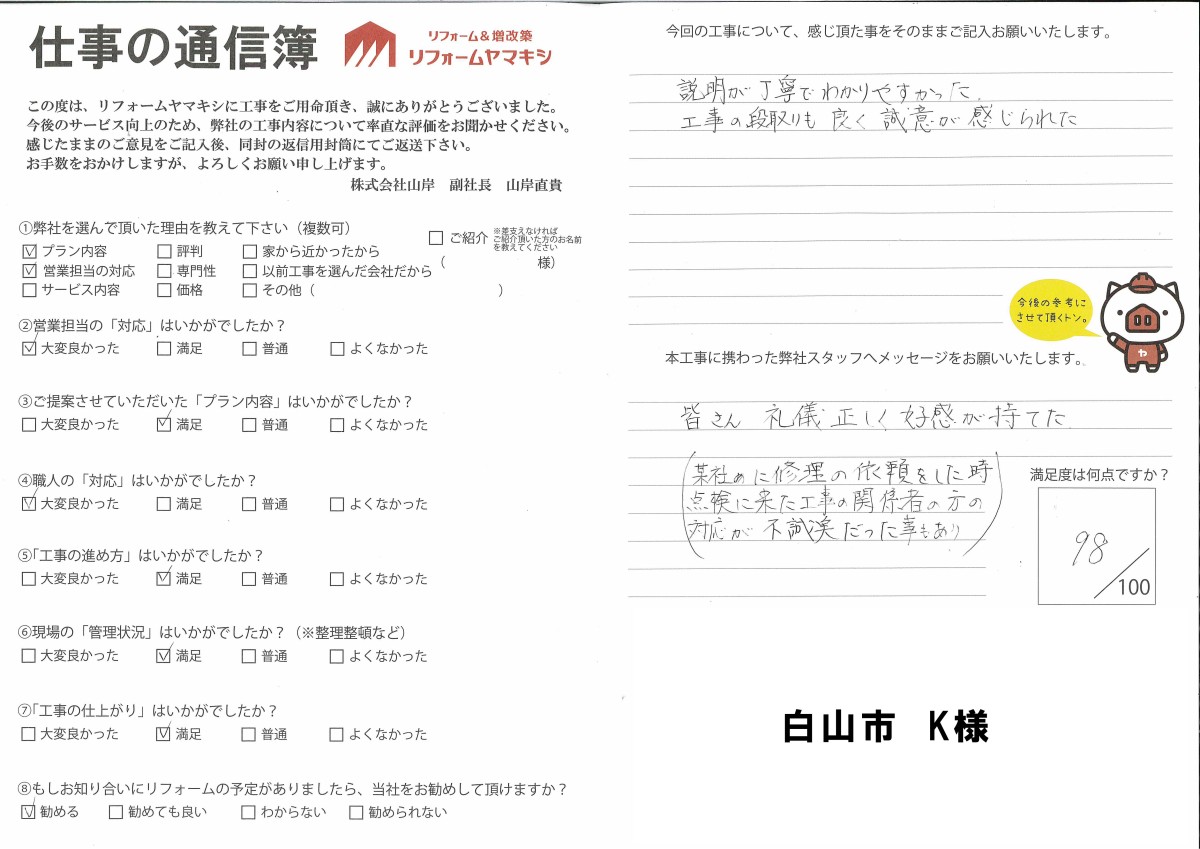 仕事の通信簿
リフォーム&増改築
リフォームヤマキシ
この度は、リフォームヤマキシに工事をご用命頂き、誠にありがとうございました。
今後のサービス向上のため、弊社の工事内容について率直な評価をお聞かせください。
感じたままのご意見をご記入後、同封の返信用封筒にてご返送下さい。
お手数をおかけしますが、よろしくお願い申し上げます。
株式会社山岸 副社長 山岸直貴
①弊社を選んで頂いた理由を教えて下さい(複数可)
☑ プラン内容 □ 評判 □ 家から近かったから
☑ 営業担当の対応 □ 専門性 □ 以前工事を選んだ会社だから
□ サービス内容 □ 価格 □ その他( )
□ ご紹介
※差支えなければ
ご紹介頂いた方のお名前
を教えてください
( 様)
②営業担当の「対応」はいかがでしたか?
☑ 大変良かった □ 満足 □ 普通 □ よくなかった
③ご提案させていただいた「プラン内容」はいかがでしたか?
□ 大変良かった ☑ 満足 □ 普通 □ よくなかった
④職人の「対応」はいかがでしたか?
☑ 大変良かった □ 満足 □ 普通 □ よくなかった
⑤「工事の進め方」はいかがでしたか?
□ 大変良かった ☑ 満足 □ 普通 □ よくなかった
⑥現場の「管理状況」はいかがでしたか?(※整理整頓など)
□ 大変良かった ☑ 満足 □ 普通 □ よくなかった
⑦「工事の仕上がり」はいかがでしたか?
□ 大変良かった ☑ 満足 □ 普通 □ よくなかった
⑧もしお知り合いにリフォームの予定がありましたら、当社をお勧めして頂けますか?
☑ 勧める □ 勧めても良い □ わからない □ 勧められない
今回の工事について、感じ頂た事をそのままご記入お願いいたします。
説明が丁寧でわかりやすかった.
工事の段取りも良く誠意が感じられた
今後の参考に
させて頂くトン。
ヤ
本工事に携わった弊社スタッフへメッセージをお願いいたします。
皆さん 礼儀正しく好感が持てた
(某社めに修理の依頼をした時
点検に来た工事の関係者の方の
対応が不誠実だった事もあり)
満足度は何点ですか?
98/100
白山市 K様